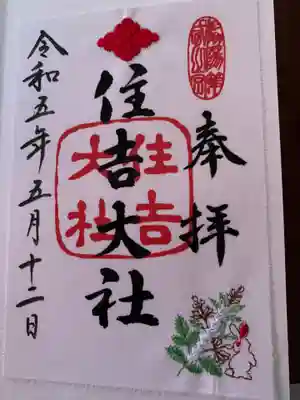 奉拝
住吉大社
住吉大社
令和五年五月十二日